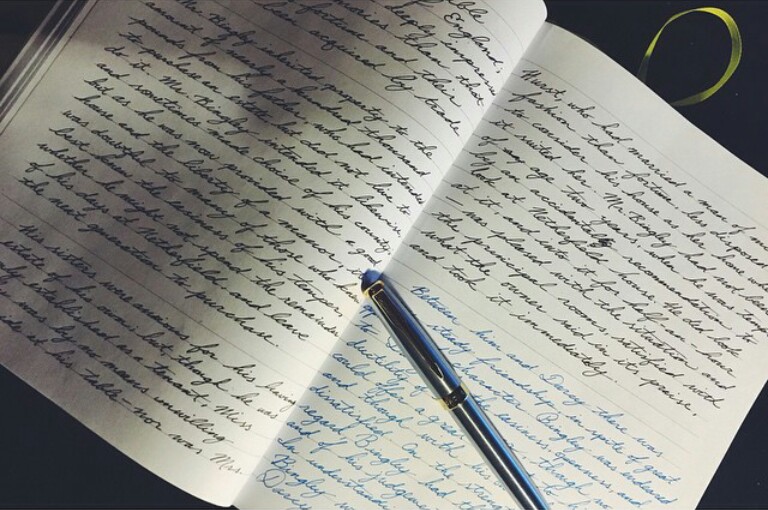 England;
deeply impressed
than that
fortune and their
been acquired by trade.
Mr. Bingley inherited property to the
amount of nearly a hundred thousand
pounds from his father, who had intended
to purchase an estate, but did not live to
do it. Mr. Bingley intended it likewise
and sometimes made choice of his county
but as he was now provided with a
house and the liberty of a manor
was doubtful to many of those who
best knew the easiness of his temper,
whether he might not spend the remainder
of his days at Netherfield, and leave
the next generation to purchase.
His sisters were anxious for his having
estate of his own; but, though he was
established as a tenant, Miss
was by no means unwilling
at his table – nor was Mrs.
Hurst, who had married a man of
fashion than fortune, less disposed
to consider his house as her home when
it suited her. Mr. Bingley had not been
of age two years, when he was
by an accidental recommendation to
look at Netherfield House. He did look
at it, and into it, for half an-hour
– was pleased with the situation and
the principal rooms, satisfied with
what the owner said in its praise,
and took it immediately.
Between him and Darcy there was
steady friendship, in spite of great
character. Bingley was endeared
easiness, openness, and
though no
dissatisfied. On the strength
regard Bingley had the
of his judgement
In understanding
Bingley was
Darcy